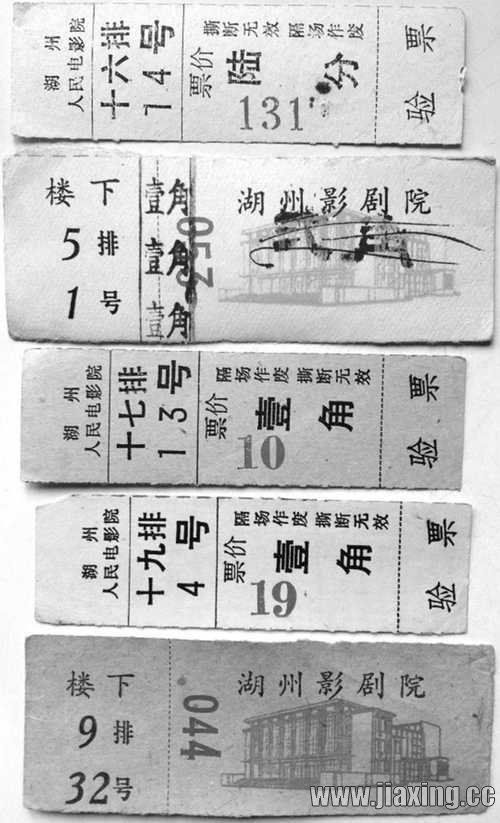 湖州
人民电影院
十六排
14号
撕断无效 隔场作废
票价 陆分
131
验票
楼下
5排
1号
壹角
壹角
壹角
湖州影剧院
湖州
人民电影院
十七排
13号
隔场作废 撕断无效
票价 壹角
10
验票
湖州
人民电影院
十九排
4号
隔场作废 撕断无效
票价 壹角
19
验票
楼下
9排
32号
044
湖州影剧院
www.jiaxing.cc